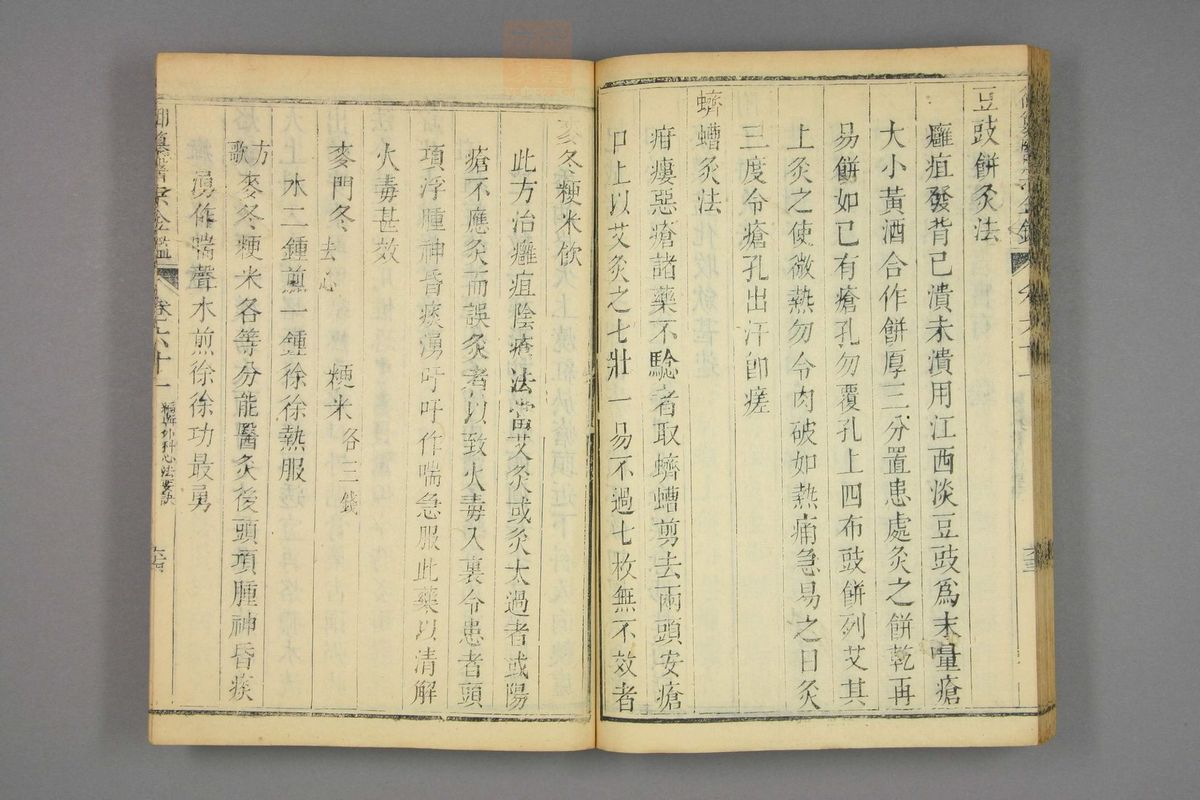 豆豉餅灸法
癰疽發背已潰未潰用江西淡豆豉爲末量瘡
大小黃酒合作餅厚三分置患處灸之餅乾再
易餅如已有瘡孔勿覆孔上四布豉餅列艾其
上灸之使微熱勿令肉破如熱痛急易之日灸
三度令瘡孔出汗卽瘥
蠐螬灸法
疳瘻惡瘡諸藥不騐者取蠐螬剪去兩頭安瘡
口上以艾灸之七壯一易不過七枚無不效者
麥冬粳米飲
此方治癰疽陰瘡法當艾灸或灸太過者或陽
瘡不應灸而誤灸者以致火毒入裏令患者頭
項浮腫神昏痰湧吁吁作喘急服此藥以清解
火毒甚效
麥門冬去心 粳米各三錢
水二鍾煎一鍾徐徐熱服
方歌 麥冬粳米各等分能醫灸後頭項腫神昏痰
湧作喘聲水煎徐徐功最勇
御纂醫宗金鑑 卷六十一 編輯外科心法要訣